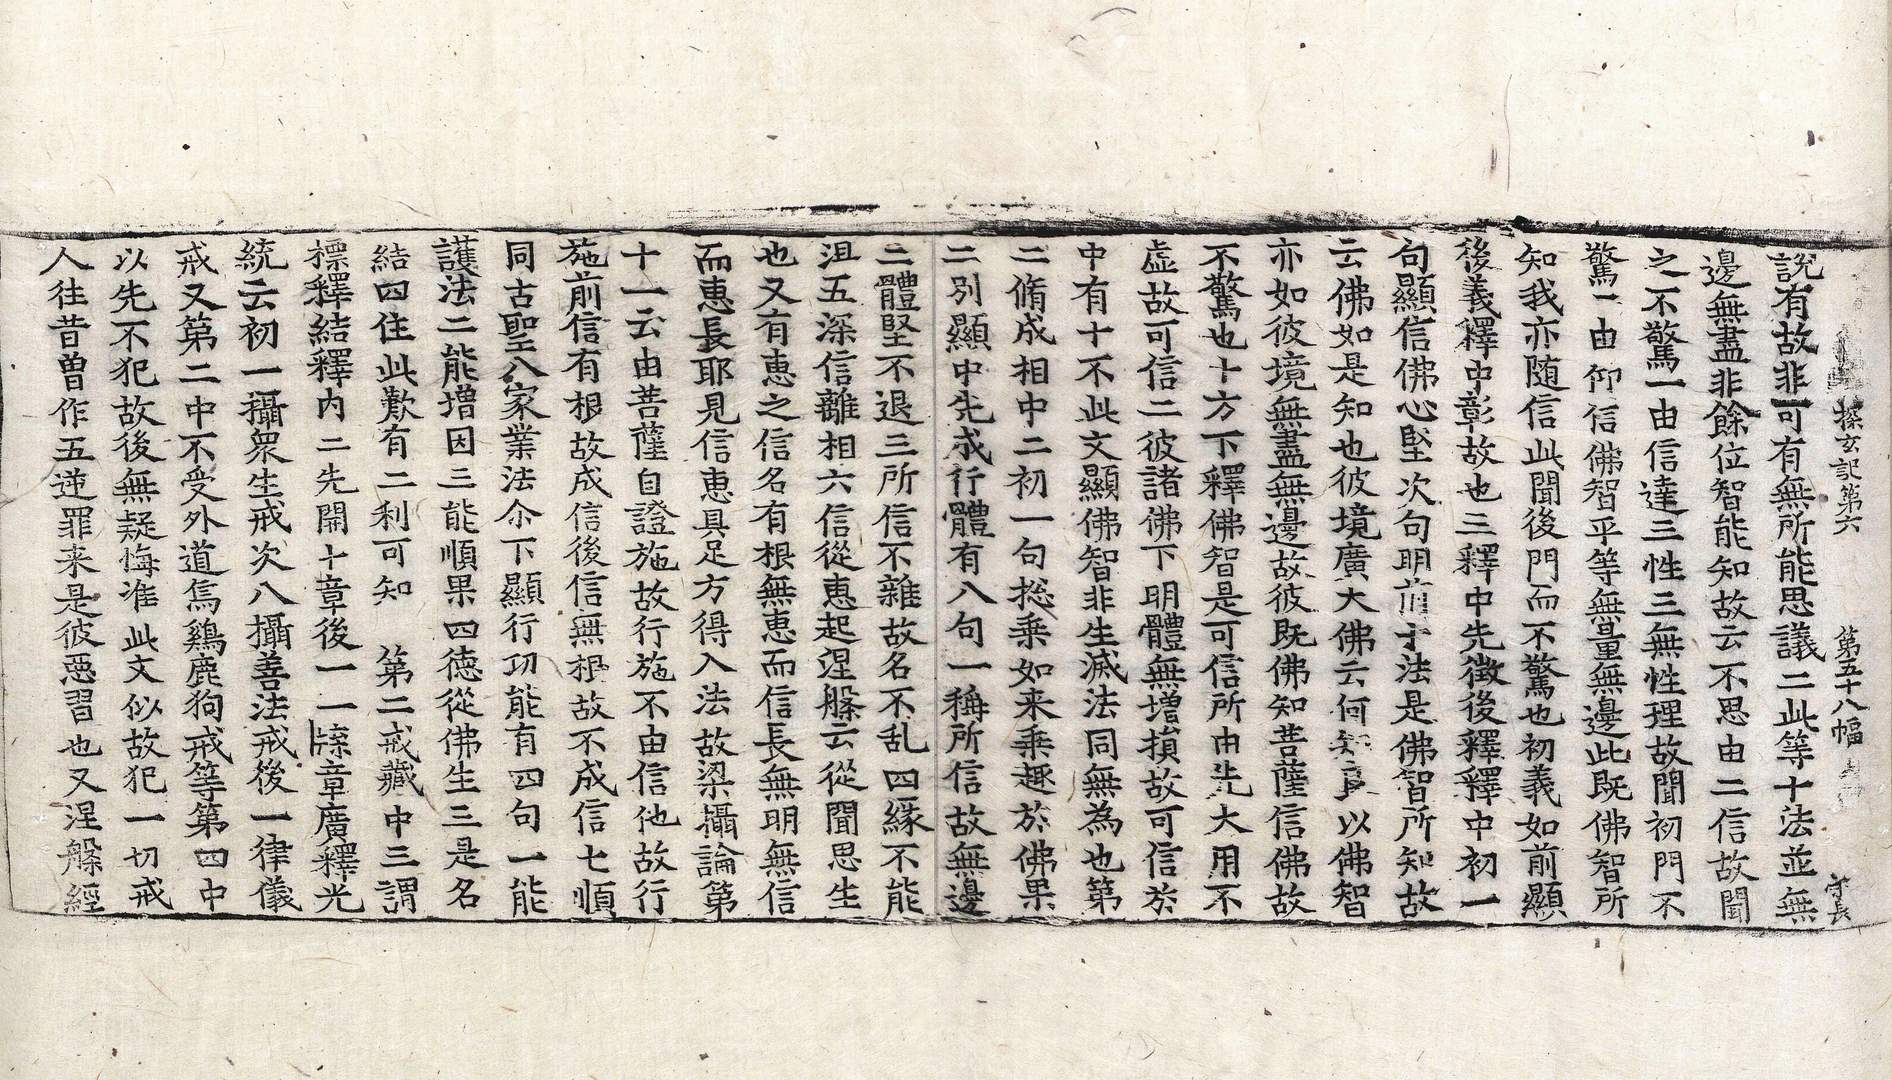 探玄記第六 第五十八幅 守長
說有故非可有無所能思議二此等十法並無
邊無盡非餘位智能知故云不思由二信故聞
之不驚一由信達三性三無性理故聞初門不
驚一由仰信佛智平等無量無邊此既佛智所
知我亦随信此聞後門而不驚也初義如前顯
後義釋中彰故也三釋中先徵後釋釋中初一
句顯信佛心堅次句明前十法是佛智所知故
云佛如是知也彼境廣大佛云何知良以佛智
亦如彼境無盡無邊故彼既佛知菩薩信佛故
不驚也十方下釋佛智是可信所由先大用不
虛故可信二彼諸佛下明體無增損故可信於
中有十不此文顯佛智非生滅法同無為也第
二脩成相中二初一句揔乗如来乗趣於佛果
二別顯中先成行體有八句一稱所信故無邊
二體堅不退三所信不雜故名不乱四緣不能
沮五深信離相六信從惠起涅槃云從聞思生
也又有惠之信名有根無惠而信長無明無信
而惠長耶見信惠具足方得入法故梁攝論第
十一云由菩薩自證施故行施不由信他故行
施前信有根故成信後信無根故不成信七順
同古聖八家業法尒下顯行功能有四句一能
護法二能增因三能順果四德從佛生三是名
結四住此歎有二利可知 第二戒藏中三謂
標釋結釋內二先開十章後一一牒章廣釋光
統云初一攝衆生戒次八攝善法戒後一律儀
戒又第二中不受外道焉鷄鹿狗戒等第四中
以先不犯故後無疑悔准此文似故犯一切戒
人往昔曽作五逆罪来是彼惡習也又涅槃經